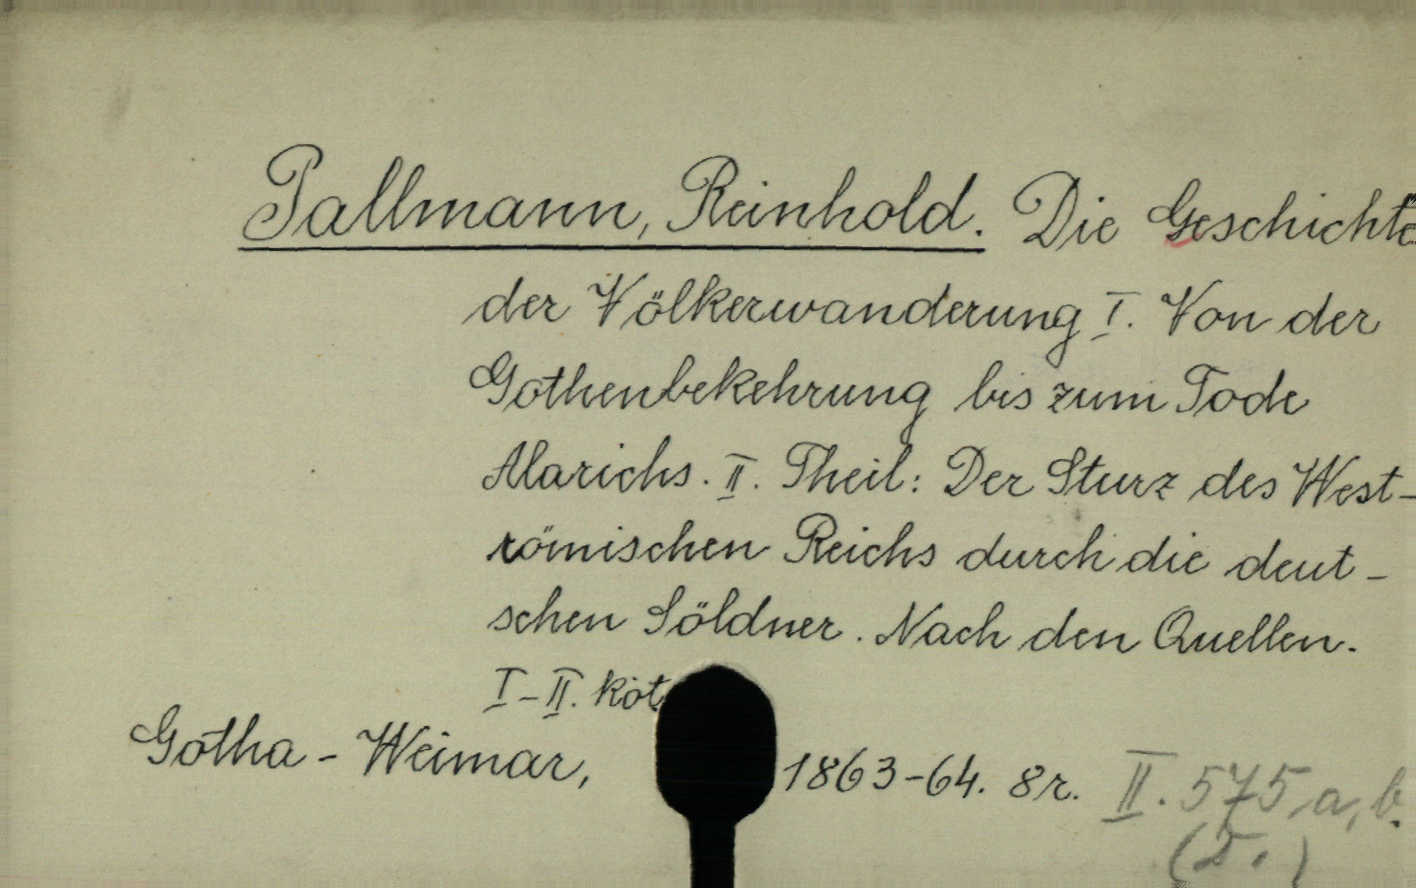 Pallmann, Reinhold. Die Geschichte
der Völkerwanderung I. Von der
Gothenbekehrung bis zum Tode
Alarichs. II. Theil: Der Sturz des West-
römischen Reichs durch die deut-
schen Söldner. Nach den Quellen.
I-II. köt
Gotha - Weimar, 1863-64. 8r. II. 575 a, b.